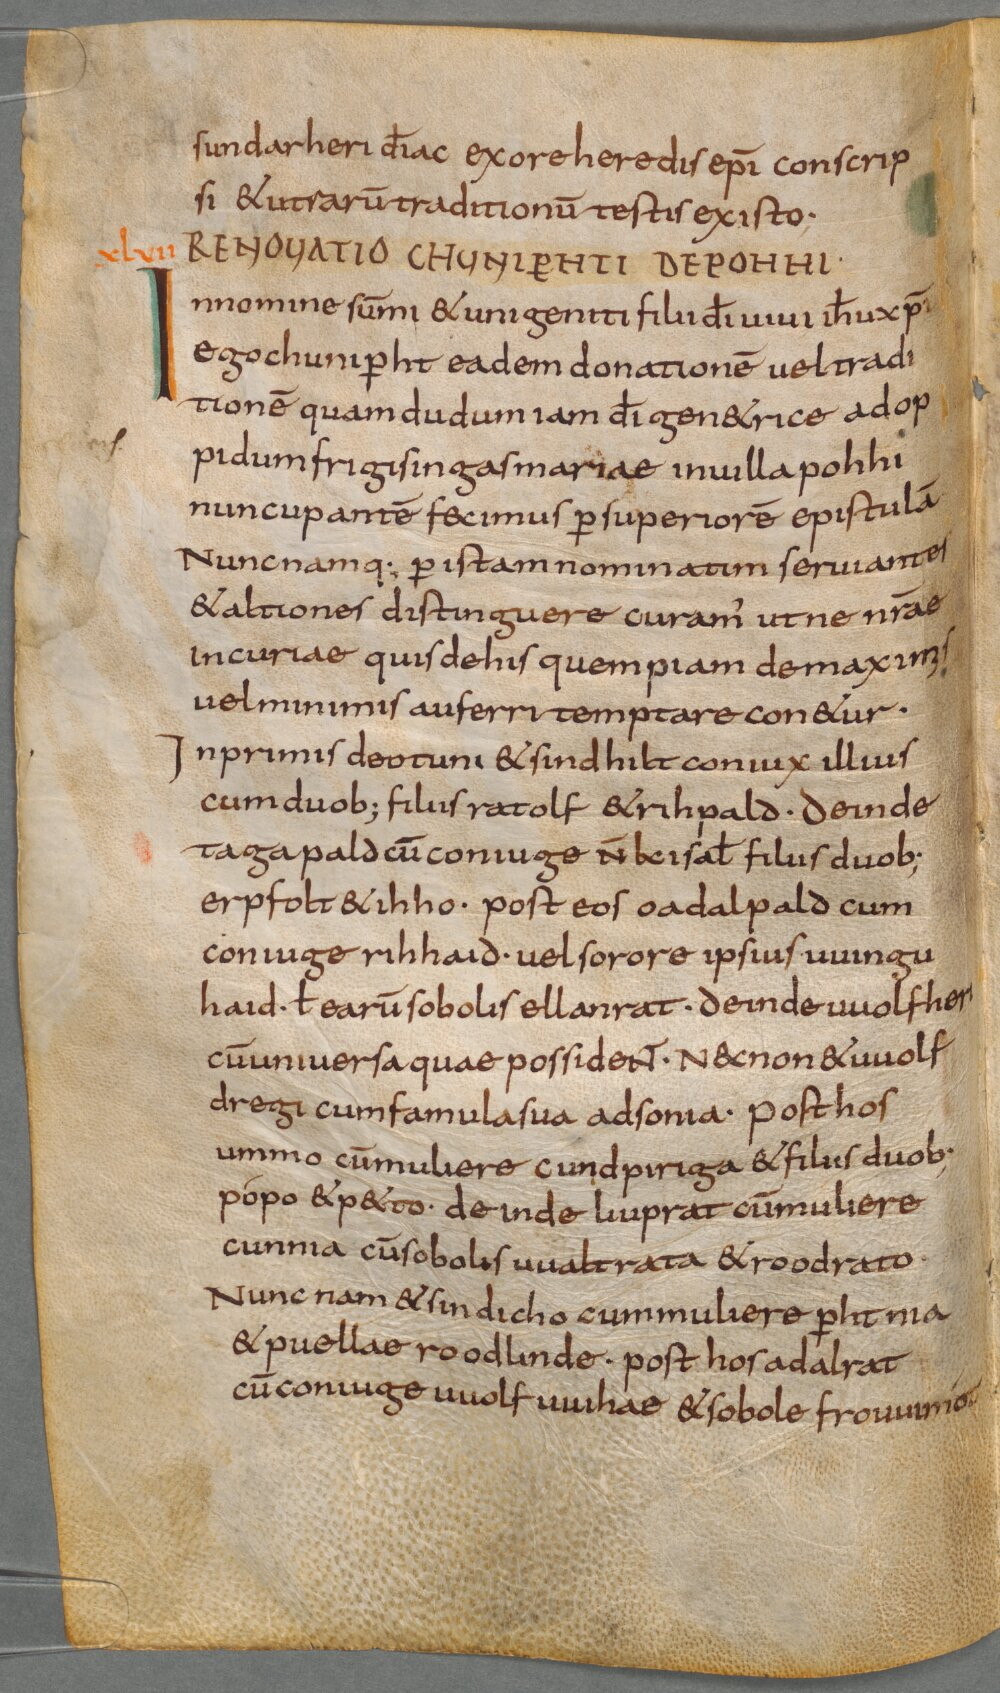 sundarheri d̄iac exore heredis ep̄i conscrip
si & utrarū traditionū testis existo.
xlvii RENOVATIO CHUNIPERHTI DE POHHI.
In nomine sūmi & unigeniti filii d̄i uiui ih̄u xp̄i
ego chunip̱ht eadem donationē uel tradi
tionē quam dudum iam d̄i gen&rice ad op
pidum frigisingas mariae in uilla pohhi
nuncupantē fecimus p̱ superiorē epistulā
Nunc namq; p̱ istam nominatim seruiantes
& altiones distinguere curam' ut ne nr̄ae
incuriae quis de his quempiam de maximis
uel minimis auferri temptare con&ur.
Inprimis deotuni & sindhilt coniux illius
cum duob; filiis ratolf & rihpald. Deinde
tagapald cū coniuge N̄ keisal̄ filiis duob;
erpfolt & ihho. post eos oadalpald cum
coniuge rihhaid. uel sorore ipsius uuingu
haid. ł earū sobolis ellanrat. Deinde uuolfheri
cū uniuersa quae possideNT. N&non & uuolf
dregi cum famula sua adsonia. Post hos
ummo cū muliere cundpiriga & filiis duob;
popo & p&to. deinde liuprat cū muliere
cunnia cū sobolis uualtrata & roodrato.
Nunc nam & sindicho cum muliere p̱htnia
& puellae roodlinde. post hos adalrat
cū coniuge uuolfuuihae & sobole frouuimo.